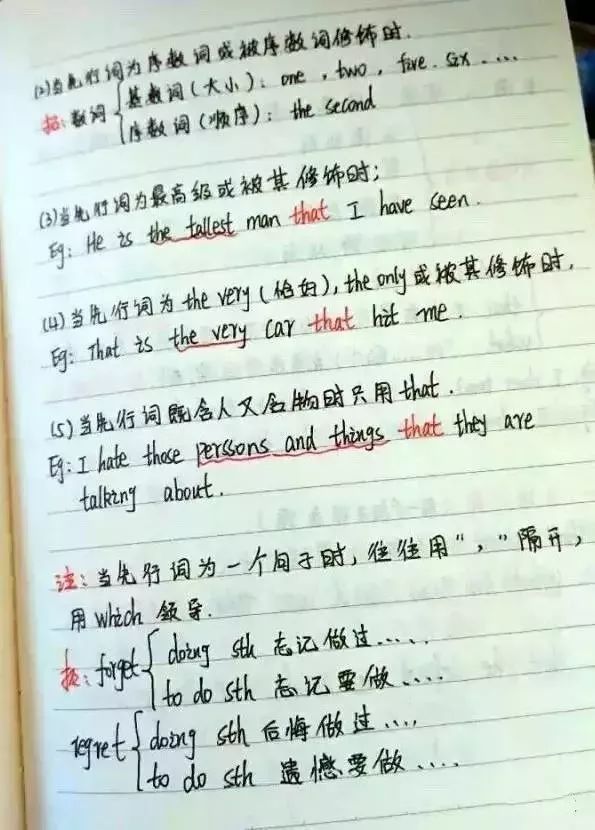 (2)当先行词为序数词或被序数词修饰时.
拓:数词{基数词(大小): one, two, five. six ....
序数词(顺序): the second
(3)当先行词为最高级或被其修饰时;
Eg: He is the tallest man that I have seen.
(4)当先行词为the very(恰好), the only或被其修饰时,
Eg: That is the very car that hit me.
(5)当先行词既含人又含物时只用that.
Eg: I hate those perssons and things that they are
talking about.
注:当先行词为一个句子时,往往用“,”隔开,
用which 领导.
拓: forget{doing sth 忘记做过.....
to do sth 忘记要做....
regret{doing sth 后悔做过....
to do sth 遗憾要做....